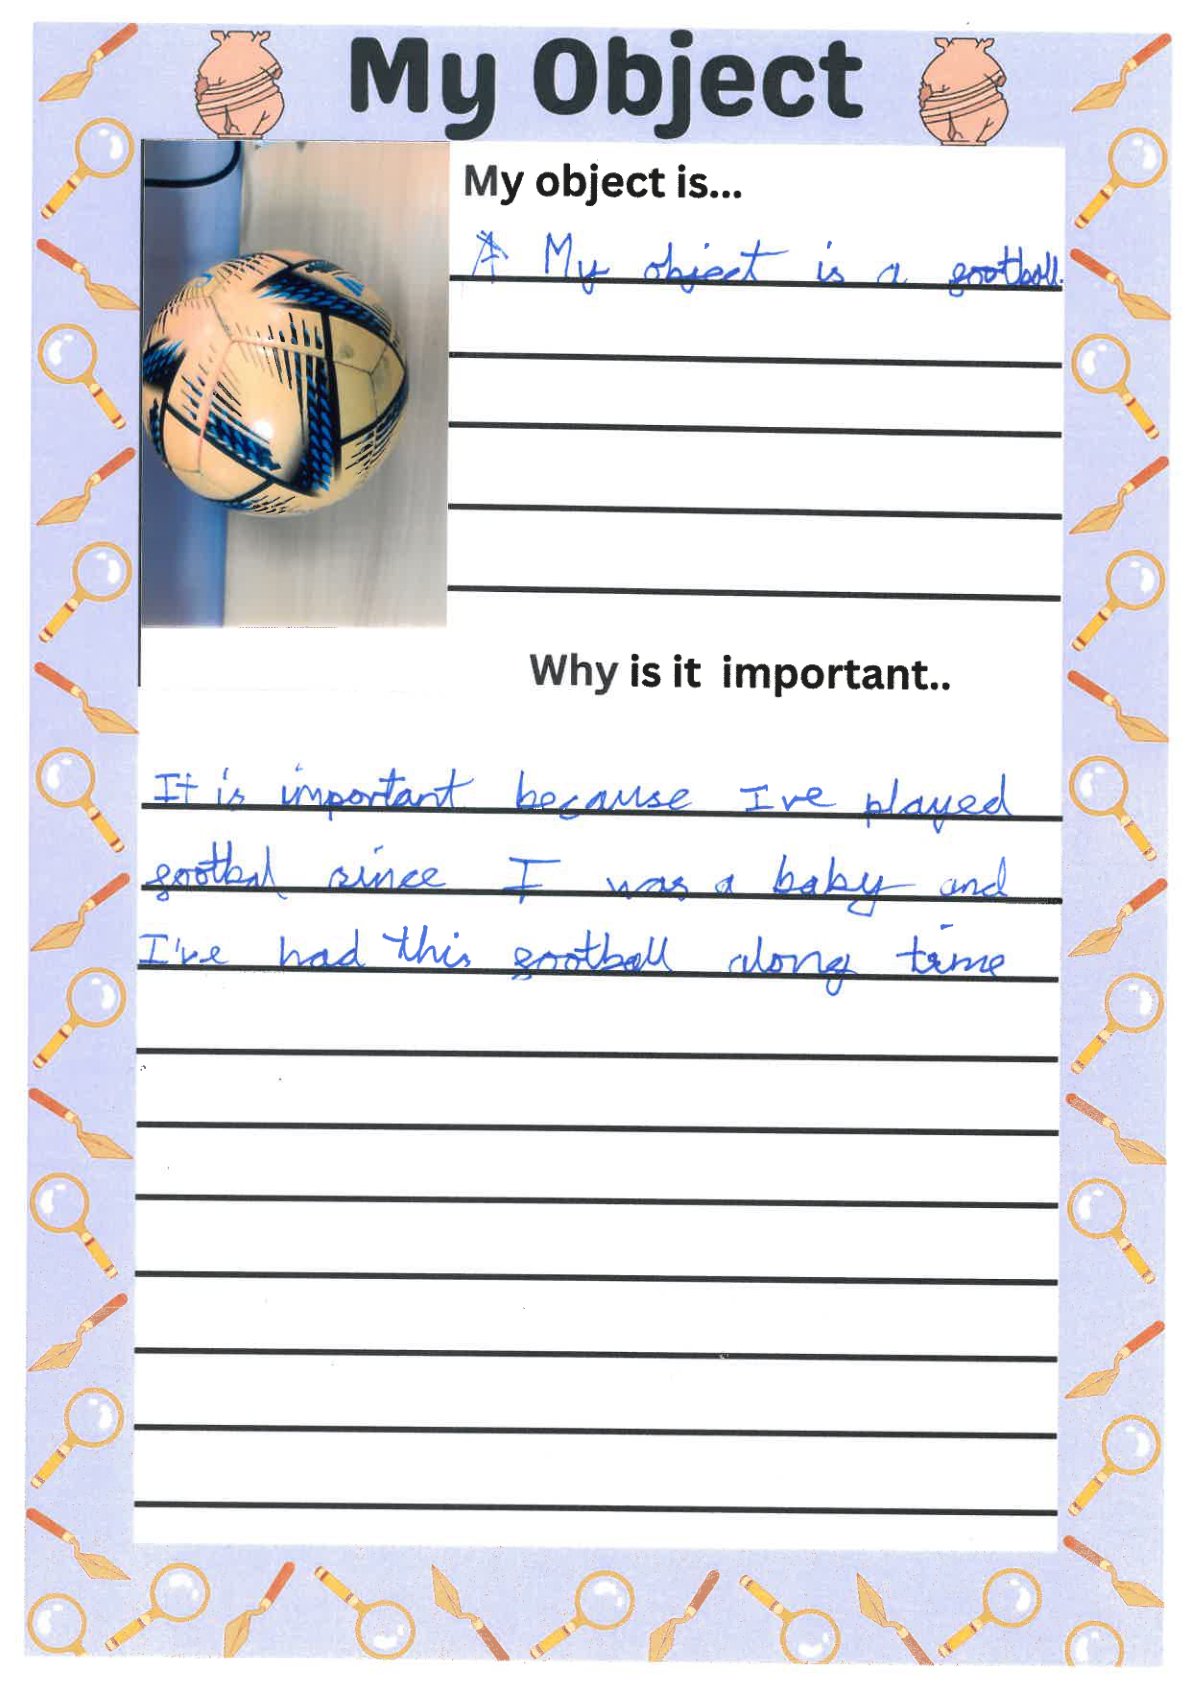 My Object
My object is...
My object is a football.
Why is it important..
It is important because I've played
footbal since I was a baby and
I've had this football along time